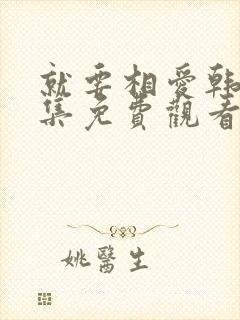 就要相愛韩
集免費觀看
姚醫生